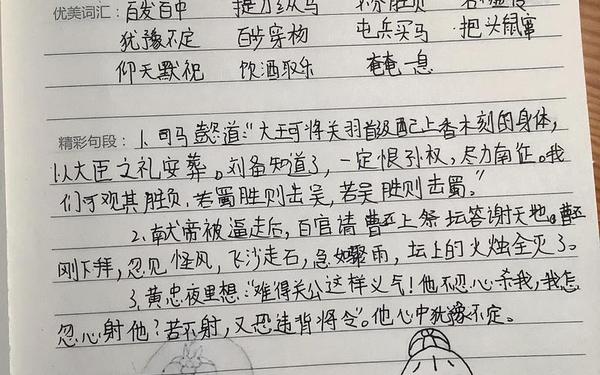 优美词汇：百发百中 提刀纵马
犹豫不定 百步穿杨 屯兵买马 抱头鼠窜
仰天默祝 饮酒取乐 奄奄一息
精彩句段：1.司马懿道："大王可将关羽首级配上香木刻的身体，
以大臣之礼安葬。刘备知道了，一定恨孙权，尽力南征。我
们可观其胜负，若蜀胜则击吴，若吴胜则击蜀。"
2.献帝被逼走后，百官请曹丕上祭坛答谢天地。曹丕
刚下拜，忽见怪风，飞沙走石，急如骤雨，坛上的火烛全灭了。
3.黄忠夜里想："难得关公这样义气！他不忍心杀我，我怎
忍心射他？若不射，又恐违背将令"。他心中犹豫不定。